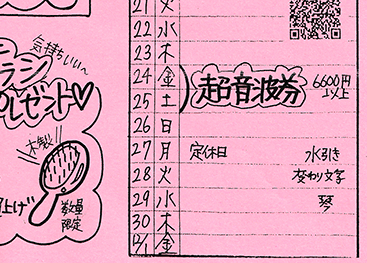 気持ちいい〜
ラシ
プレゼント♡
木製
上げ
数量
限定
21 火
22 水
23 木
24 金
25 土
超音波券 6600円
以上
26 日
27 月 定休日 水引き
28 火 変わり文字
29 水 琴
30 木
12/1 金